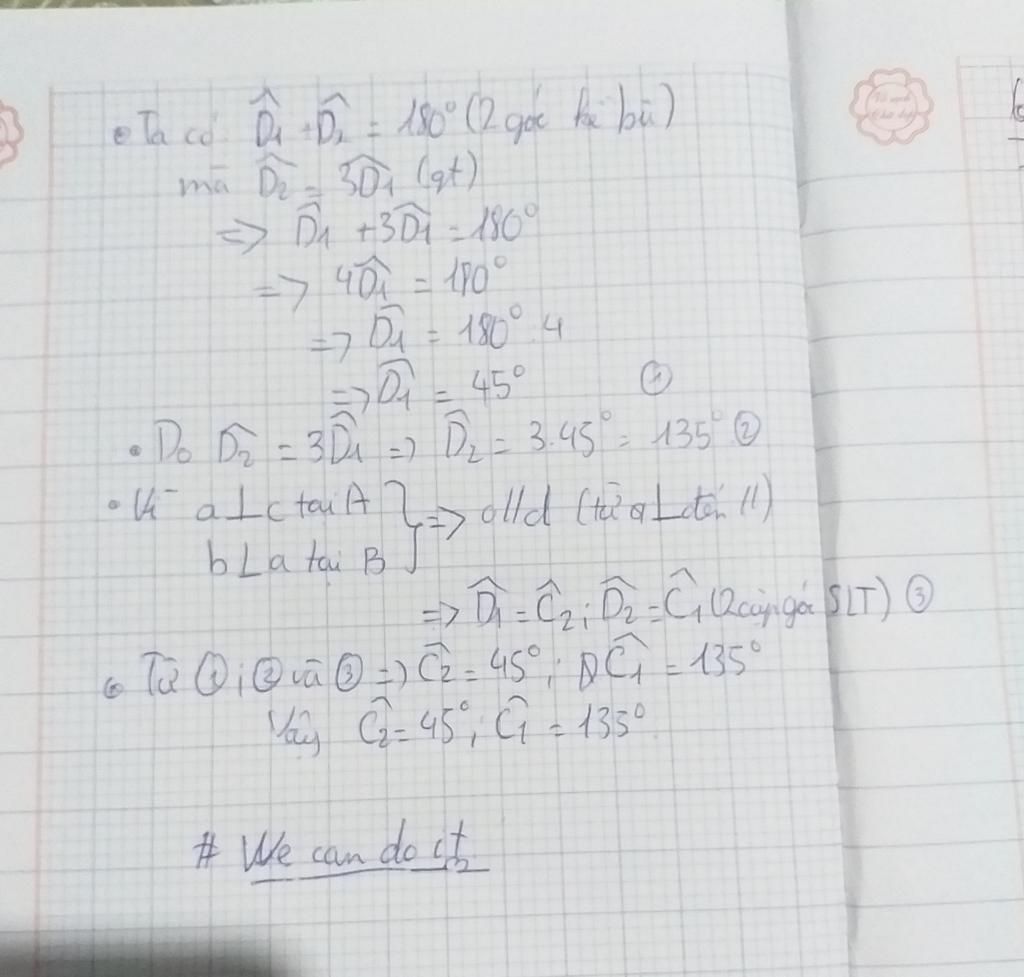 • Ta có D̂1 + D̂2 = 180° (2 góc kề bù)
mà D̂2 = 3D̂1 (gt)
=> D̂1 + 3D̂1 = 180°
=> 4D̂1 = 180°
=> D̂1 = 180° : 4
=> D̂1 = 45° ①
• Do D̂2 = 3D̂1 => D̂2 = 3.45° = 135° ②
• Vì a⊥c tại A } => c//d (từ ⊥ đến //)
b⊥a tại B
=> D̂1 = Ĉ2; D̂2 = Ĉ1 (2 cặp góc SLT) ③
• Từ ①; ② và ③ => Ĉ2 = 45°; Ĉ1 = 135°
Vậy Ĉ2 = 45°; Ĉ1 = 135°
# We can do it